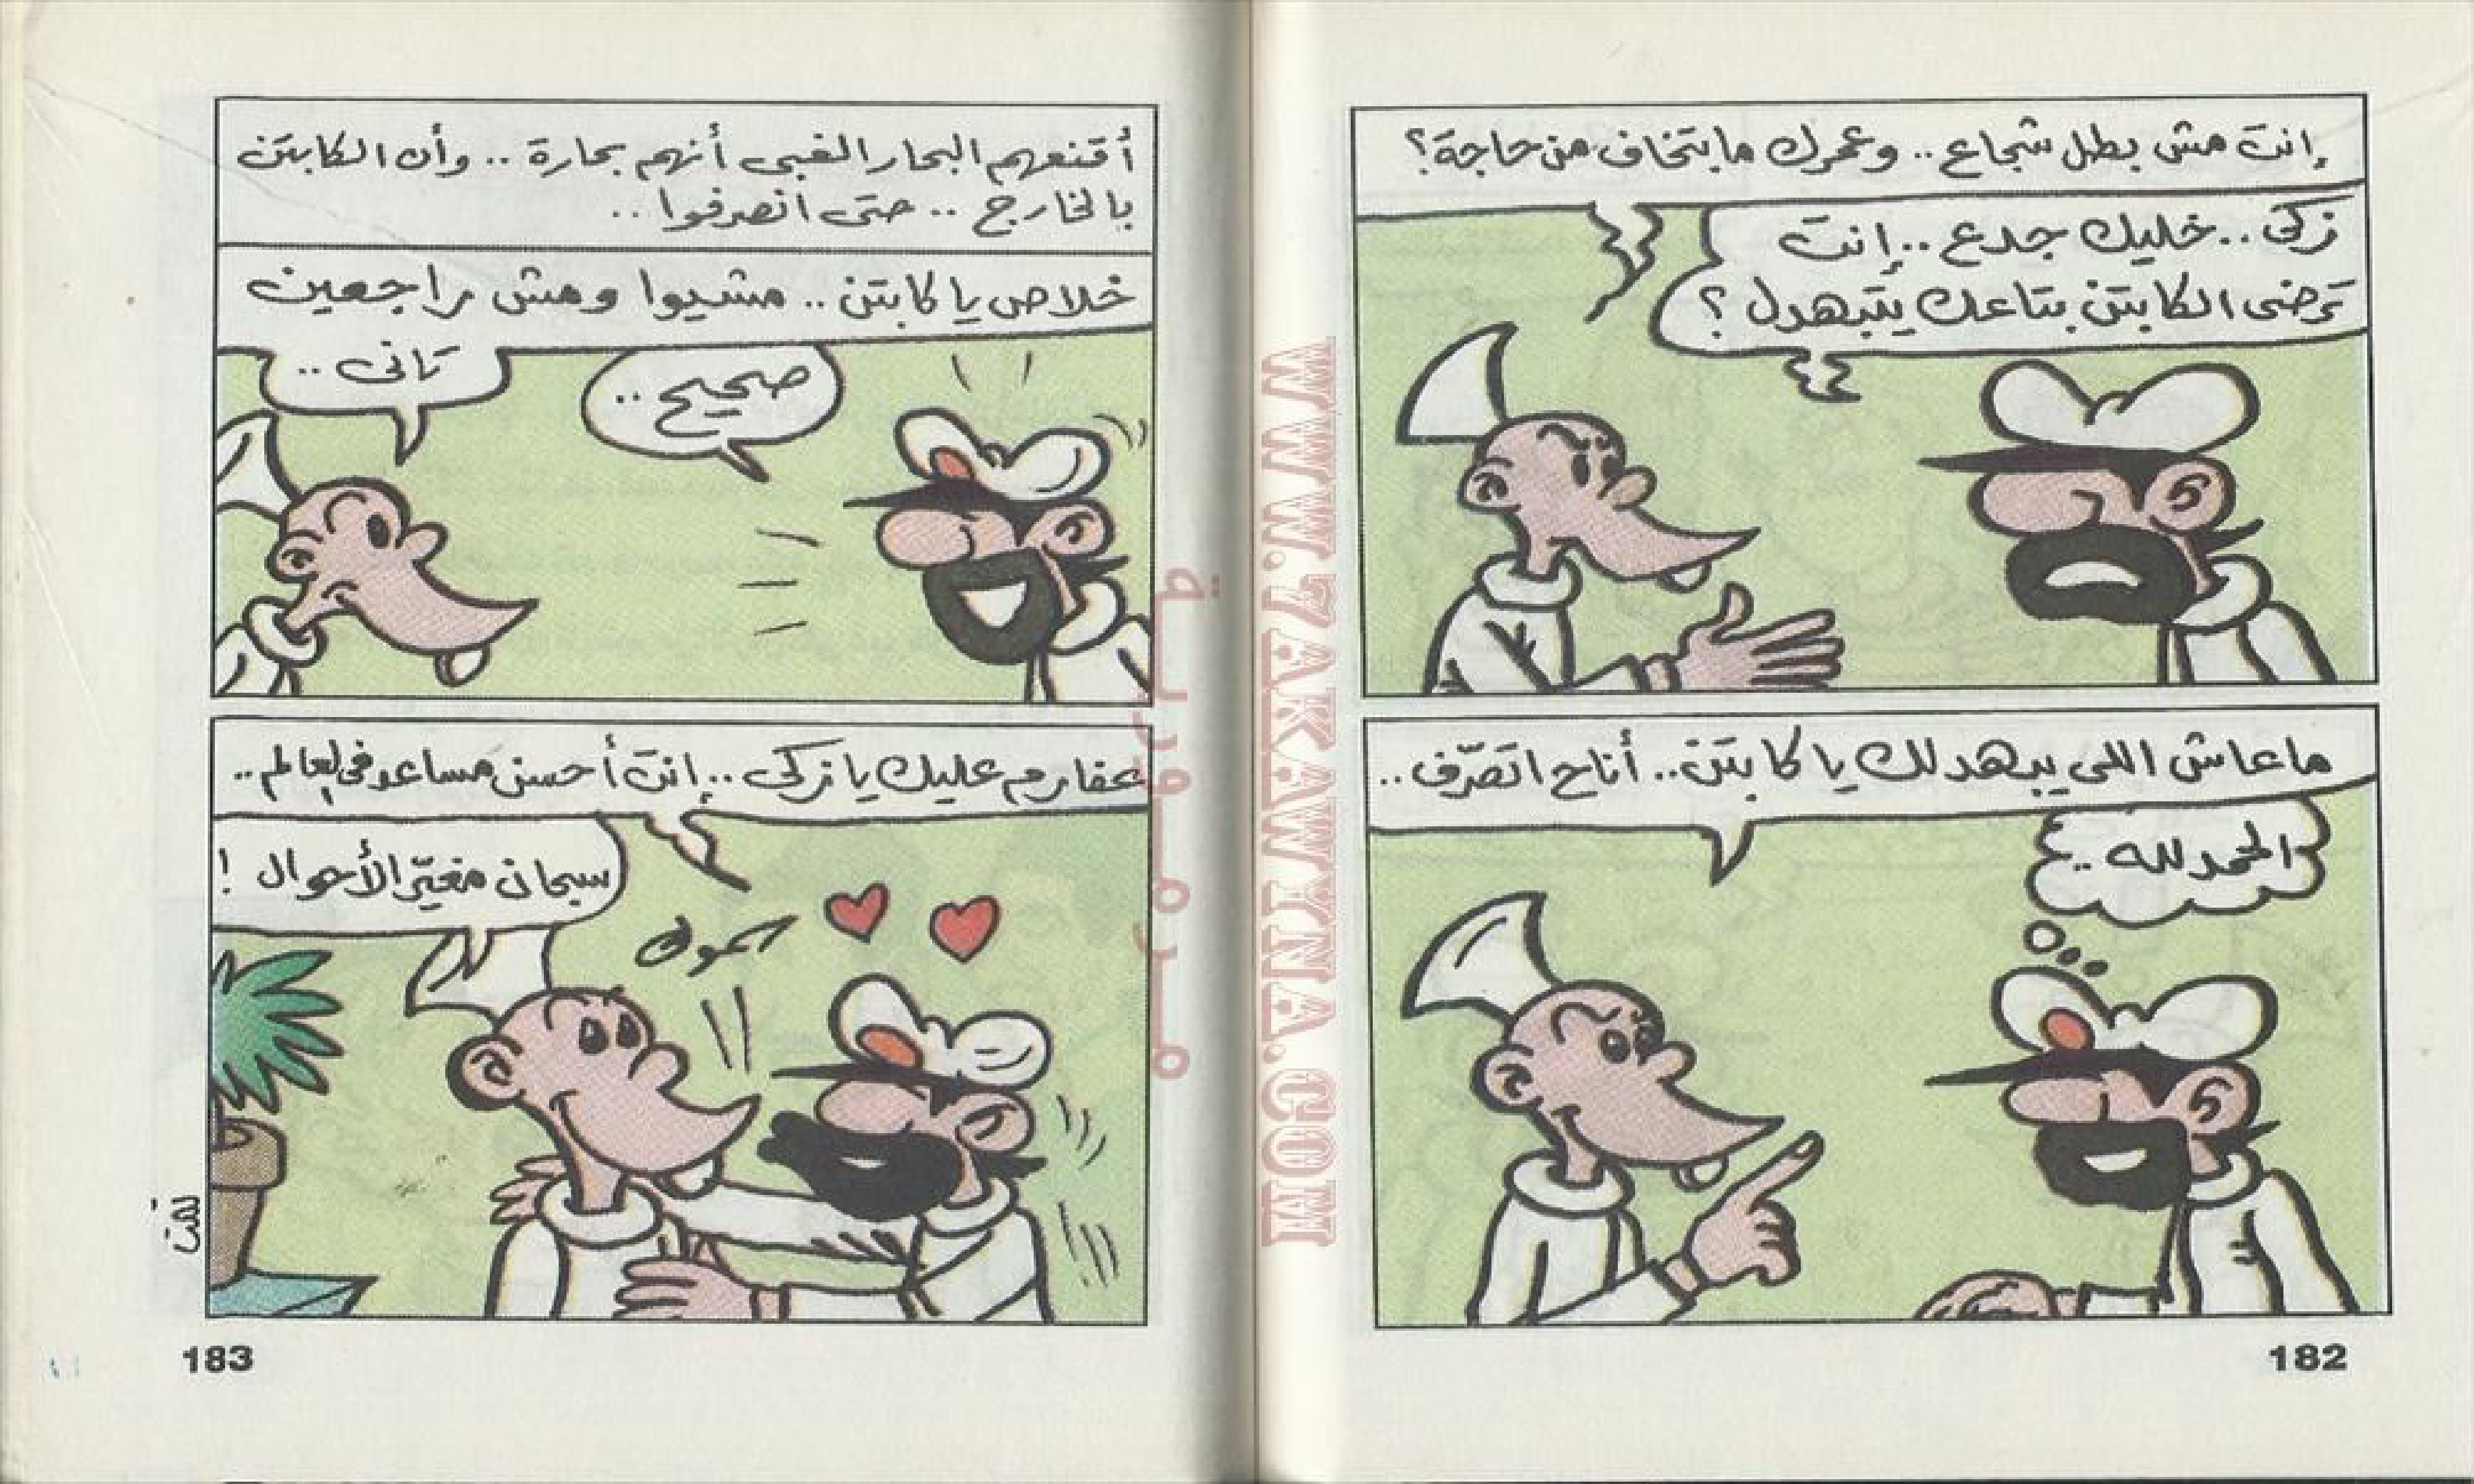 إنت مش بطل شجاع .. وعمرك ما بتخاف من حاجة؟
زكى .. خليك جدع .. إنت
ترضى الكابتن بتاعك يتبهدل؟
ما عاش اللى يبهدلك يا كابتن .. أنا ح اتصرّف ..
الحمد لله ..
182
أقنعهم البحار الغبى أنهم بحارة .. وأن الكابتن
بالخارج .. حتى انصرفوا ..
خلاص يا كابتن .. مشيوا ومش راجعين
تانى ..
صحيح ..
عفارم عليك يا زكى .. إنت أحسن مساعد فى العالم ..
سبحان مغيّر الأحوال !
امموك
تمت
183
WWW.7AKAWYNA.COM